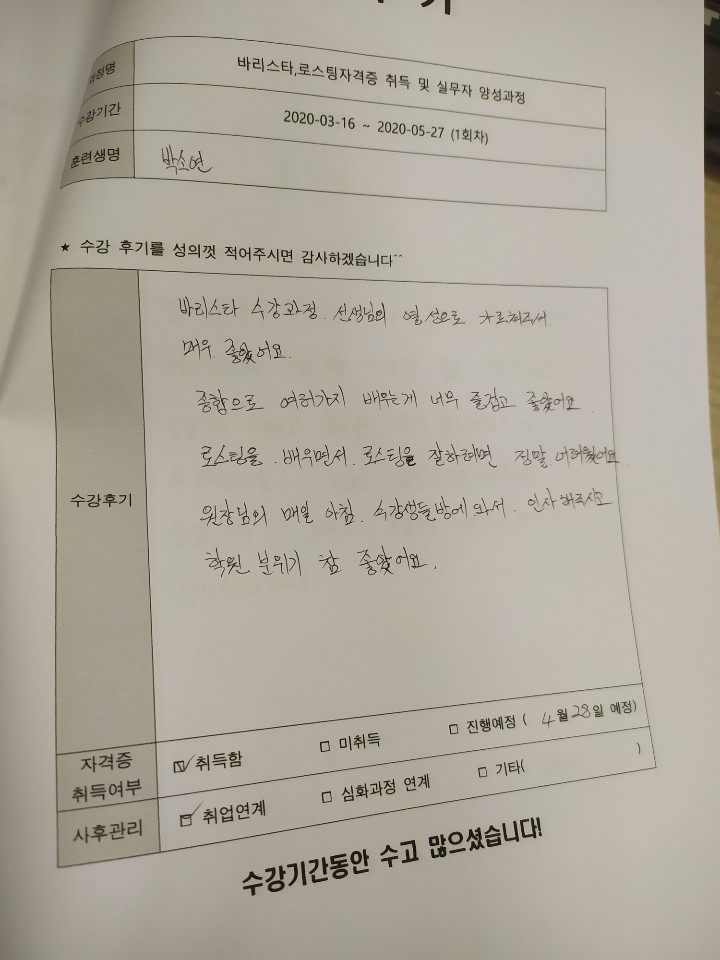 기
과정명 바리스타,로스팅자격증 취득 및 실무자 양성과정
수강기간 2020-03-16 ~ 2020-05-27 (1회차)
훈련생명 박소연
★ 수강 후기를 성의껏 적어주시면 감사하겠습니다^^
수강후기
바리스타 수강과정. 선생님의 열성으로 가르쳐주셔서
매우 좋았어요.
종합으로 여러가지 배우는게 너무 즐겁고 좋았어요.
로스팅을. 배우면서. 로스팅을 잘하려면 정말 어려웠어요
원장님의 매일 아침. 수강생들방에 와서. 인사해주시고
학원 분위기 참 좋았어요.
자격증 취득여부 ☑ 취득함 □ 미취득 □ 진행예정 ( 4월 28일 예정)
사후관리 ☑ 취업연계 □ 심화과정 연계 □ 기타( )
수강기간동안 수고 많으셨습니다!